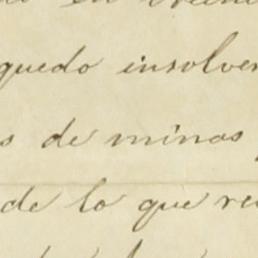 en
quedo insolven
s de minas
de lo que re